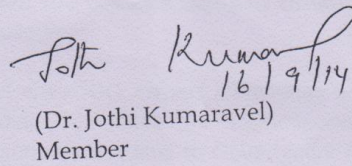 Jothi Kumar
16/9/14
(Dr. Jothi Kumaravel)
Member